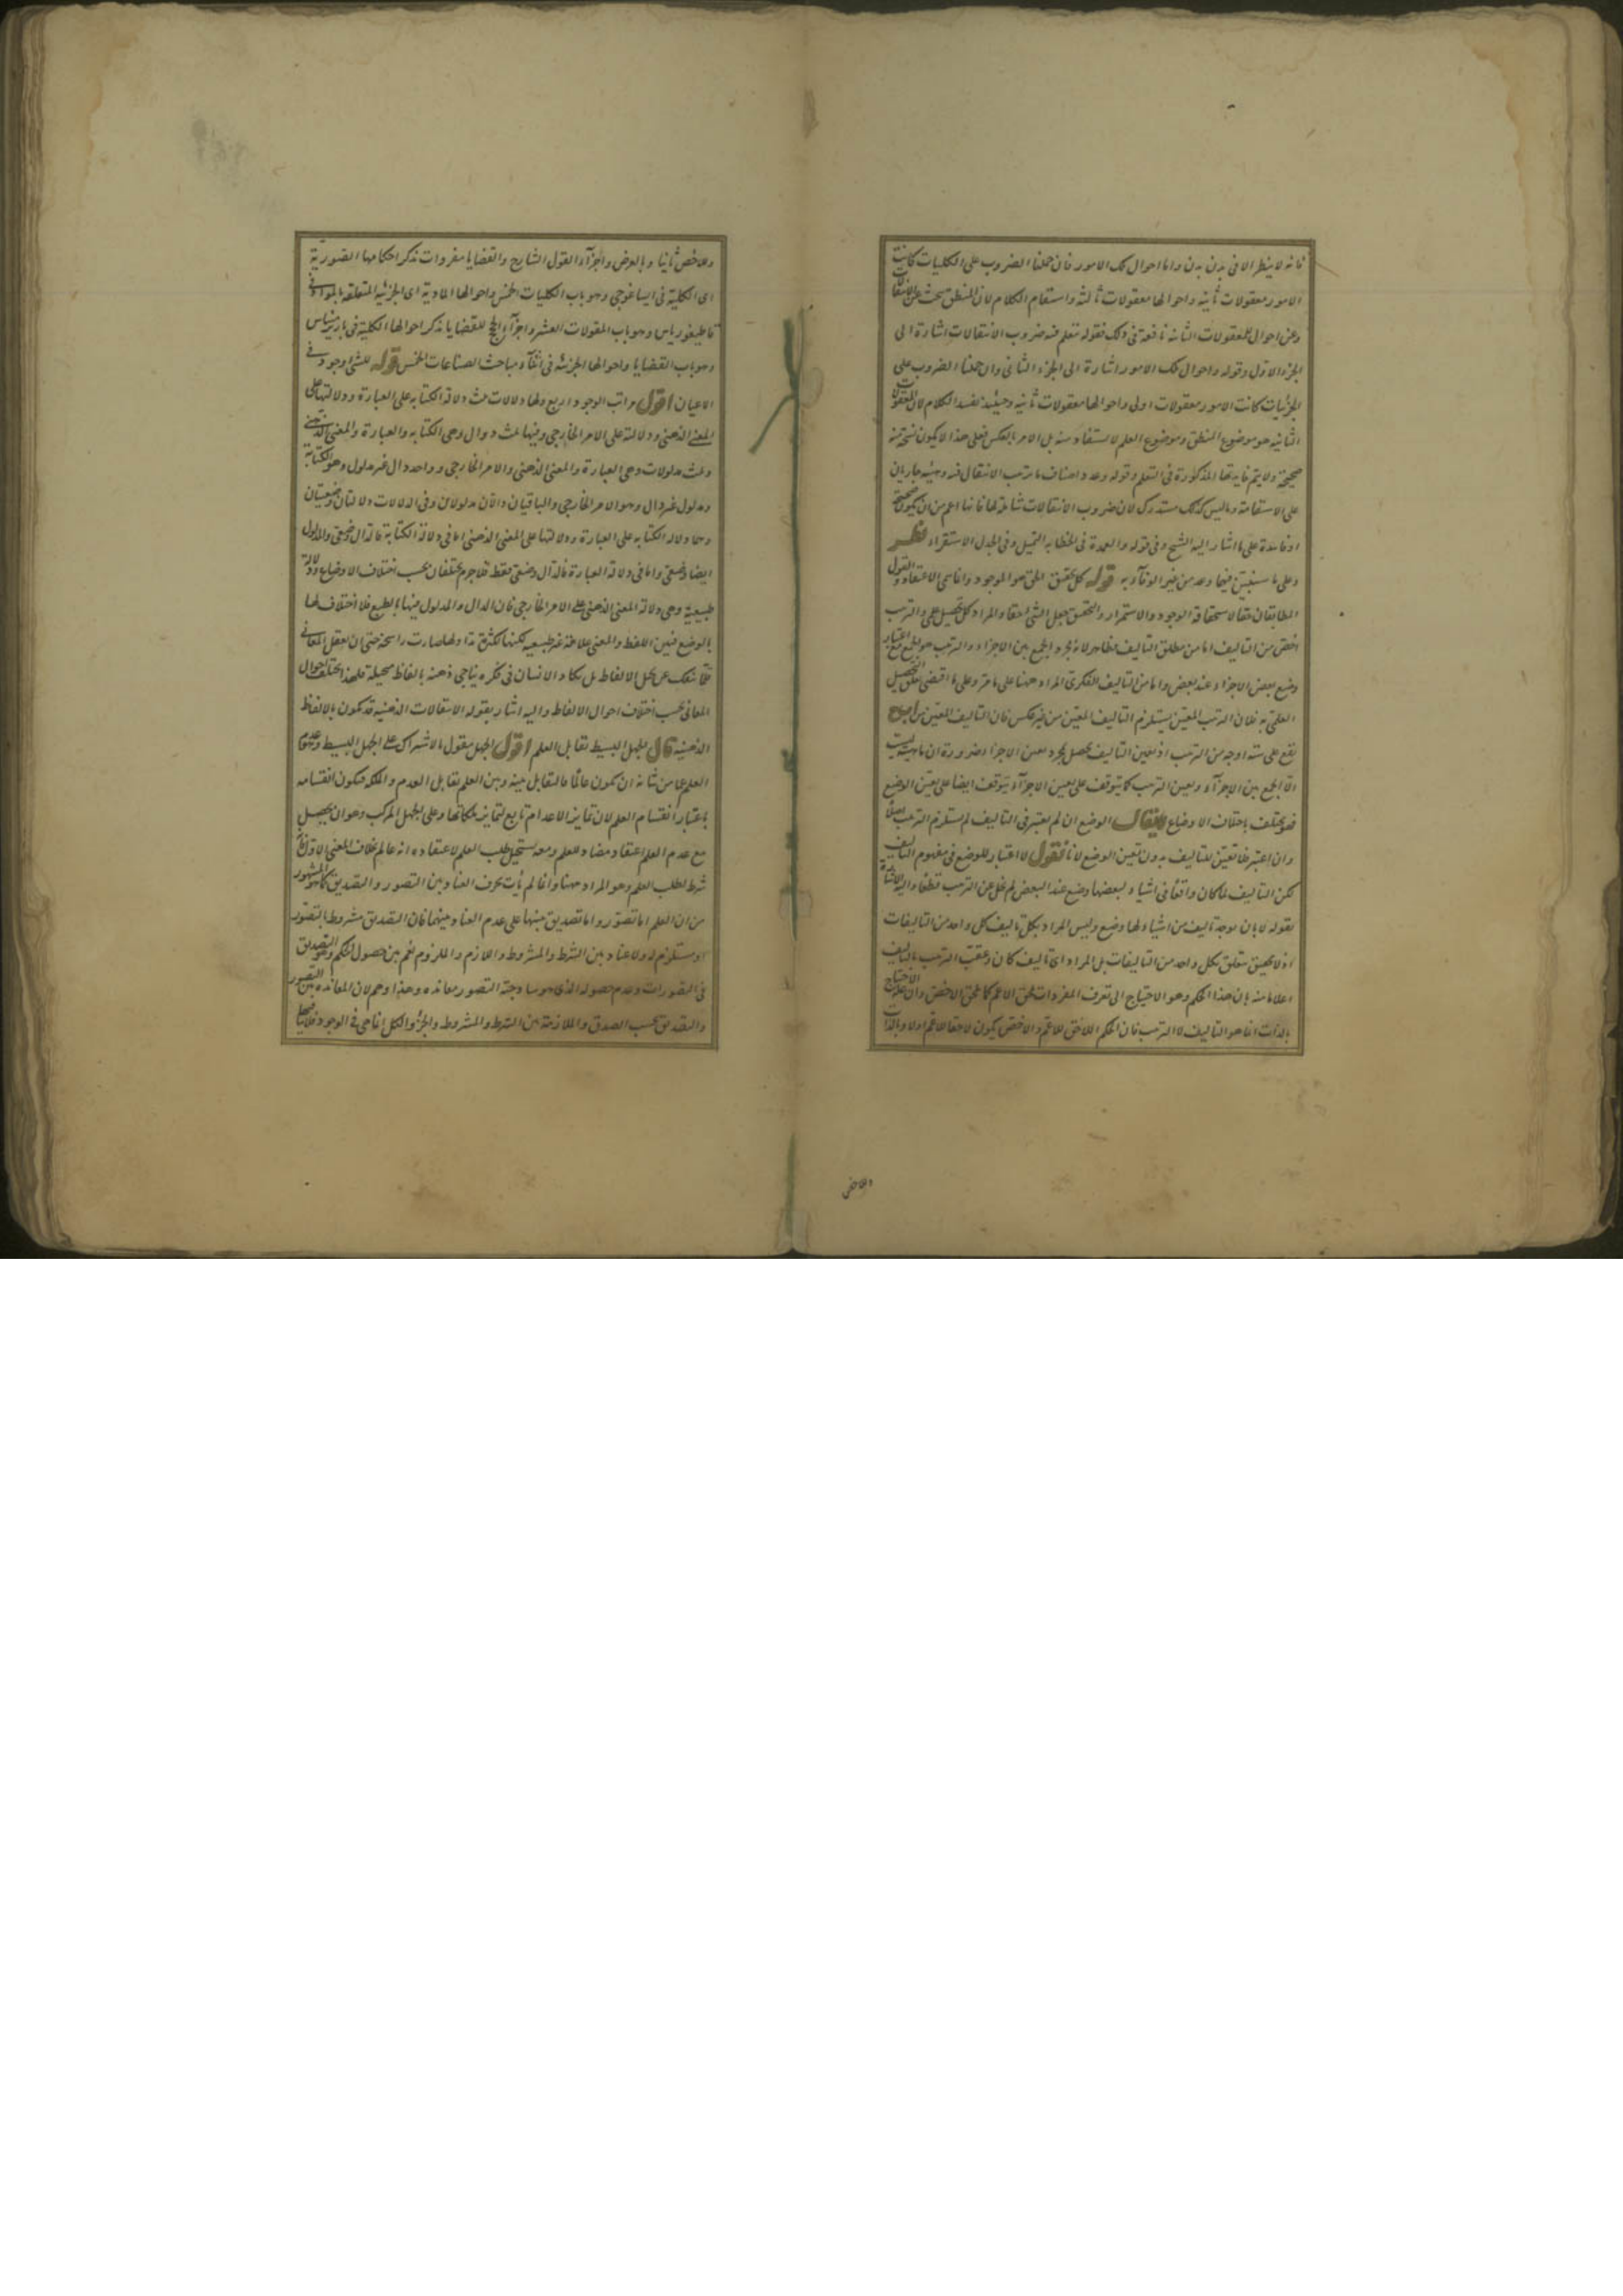 فانه لا ينظر الا في بدن بدن واما احوال تلك الامور فان حملنا الضروب على الكليات كانت
الامور معقولات ثانية واحوالها معقولات ثالثة واستقام الكلام لان المنطق يبحث عن الانتقالات
وعن احوال المعقولات الثانية نافعة في ذلك فقوله متعلم فيه ضروب الانتقالات اشارة الى
الجزء الاول وقوله واحوال تلك الامور اشارة الى الجزء الثاني وان حملنا الضروب على
الجزئيات كانت الامور معقولات اولى واحوالها معقولات ثانية وحينئذ يفسد الكلام لان المعقولات
الثانية هو موضوع المنطق وموضوع العلم لا يستفاد منه بل الامر بالعكس فعلى هذا لا يكون نسخة منه
صحيحة ولا يتم غايتها المذكورة في التعلم وقوله وعدد اصناف ما ترتب الانتقال فيه وهيئته جاريان
على الاستقامة وما ليس كذلك مستدرك لان ضروب الانتقالات شاملة لها فانها اعم من ان يكون صحيحة
او فاسدة على ما اشار اليه الشيخ وفي قوله والعمدة في الخطابة التمثيل وفي الجدل الاستقراء نظر
وعلى ما سنبين فيما وعد من غير الوفاء به قوله كل تحقيق الحق هو الموجود واناسى الاعتقاد والقول
المطابقان حقا لاستحقاقه الوجود والاستمرار والتحقيق جعل الشئ حقا والمراد كل تحصيل علمى والترتيب
اخص من التاليف اما من مطلق التاليف فظاهر لانه مجرد الجمع بين الاجزاء والترتيب هو الجمع مع اعتبار
وضع بعض الاجزاء عند بعض واما من التاليف الفكرى المراد ههنا على ما مر وعلى ما اقتضى تعلق التحصيل
العلمى به فلان الترتيب المعين يستلزم التاليف المعين من غير عكس فان التاليف المعين من ا ب ج
يقع على ستة اوجه من الترتيب اذ تعين التاليف يحصل بمجرد تعين الاجزاء ضرورة ان ماهيته ليست
الا الجمع بين الاجزاء وتعين الترتيب كما يتوقف على تعين الاجزاء يتوقف ايضا على تعين الوضع
فهو يختلف باختلاف الاوضاع لا يقال الوضع ان لم يعتبر في التاليف لم يستلزم الترتيب اصلا
وان اعتبر فلا تعين للتاليف بدون تعين الوضع لانا نقول لا اعتبار للوضع في مفهوم التاليف
لكن التاليف لما كان واقعا في اشياء لبعضها وضع عند البعض لم يخل عن الترتيب قطعا واليه الاشارة
بقوله لا بان يوجد تاليف من اشياء لها وضع وليس المراد بكل تاليف كل واحد من التاليفات
اذ لا تحقيق متعلق بكل واحد من التاليفات بل المراد اى تاليف كان وعقب الترتيب بالتاليف
اعلاما منه بان هذا الحكم وهو الاحتياج الى تعرف المفردات يلحق الاعم كما يلحق الاخص وان علة الاحتياج
بالذات انما هو التاليف لا الترتيب فان الحكم اللاحق للاعم والاخص يكون لاحقا للاعم اولا وبالذات
وللاخص
وللاخص ثانيا وبالعرض واجزاء القول الشارح والقضايا مفردات تذكر احكامها الصورية
اى الكلية في ايساغوجي وهو باب الكليات الخمس واحوالها المادية اى الجزئية المتعلقة بالمواد في
قاطيغورياس وهو باب المقولات العشر واجزاء الحجج القضايا يذكر احوالها الكلية في باريرميناس
وهو باب القضايا واحوالها الجزئية في اثناء مباحث الصناعات الخمس قوله للشئ وجود في
الاعيان اقول مراتب الوجود اربع ولها دلالات ثلث دلالة الكتابة على العبارة ودلالتها على
المعنى الذهني ودلالته على الامر الخارجي وفيها ثلث دوال وهي الكتابة والعبارة والمعنى الذهني
وثلث مدلولات وهي العبارة والمعنى الذهني والامر الخارجي وواحد دال غير مدلول وهو الكتابة
ومدلول غير دال وهو الامر الخارجي والباقيان دالان مدلولان وفي الدلالات دلالتان وضعيتان
وهما دلالة الكتابة على العبارة ودلالتها على المعنى الذهني اما في دلالة الكتابة فالدال وضعي والمدلول
ايضا وضعي واما في دلالة العبارة فالدال وضعي فقط فلا جرم يختلفان بحسب اختلاف الاوضاع ودلالة
طبيعية وهي دلالة المعنى الذهني على الامر الخارجي فان الدال والمدلول فيها بالطبع فلا اختلاف لها
بالوضع فبين اللفظ والمعنى علاقة غير طبيعية لكنها لكثرة تداولها صارت راسخة حتى ان تعقل المعاني
قلما ينفك عن تخيل الالفاظ بل يكاد الانسان في فكره يناجي ذهنه بالفاظ مخيلة فلهذا يختلف احوال
المعاني بحسب اختلاف احوال الالفاظ واليه اشار بقوله الانتقالات الذهنية قد يكون بالالفاظ
الذهنية قال الجهل البسيط يقابل العلم اقول الجهل مقول بالاشتراك على الجهل البسيط وهو عدم
العلم عما من شانه ان يكون عالما فالتقابل بينه وبين العلم تقابل العدم والملكة فيكون انقسامه
باعتبار انقسام العلم لان تمايز الاعدام تابع لتمايز ملكاتها وعلى الجهل المركب وهو ان يحصل
مع عدم العلم اعتقاد مضاد للعلم ومعه يستحيل طلب العلم لاعتقاده انه عالم بخلاف المعنى الاول فانه
شرط لطلب العلم وهو المراد ههنا وانما لم يأت بحرف العناد بين التصور والتصديق كما هو المشهور
من ان العلم اما تصور واما تصديق منبها على عدم العناد بينهما فان التصديق مشروط بالتصور
او مستلزم له ولا عناد بين الشرط والمشروط واللازم والملزوم نعم بين حصول الحكم وهو التصديق
في التصورات وعدم حصوله الذى هو ساذجية التصور معاندة وهذا وهم لان المعاندة بين التصور
والتصديق بحسب الصدق والملازمة بين الشرط والمشروط والجزء والكل انما هي في الوجود فلا ينافيها